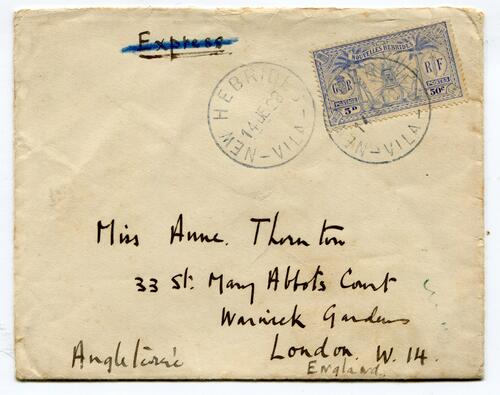 Express
NOUVELLES HEBRIDES
G R
R F
POSTAGE
POSTES
5D
50c
NEW HEBRIDES
14 DE 28
-VILA-
NE
-VILA-
Miss Anne. Thornton
33 St. Mary Abbots Court
Warwick Gardens
London. W. 14.
Angleterre
England.